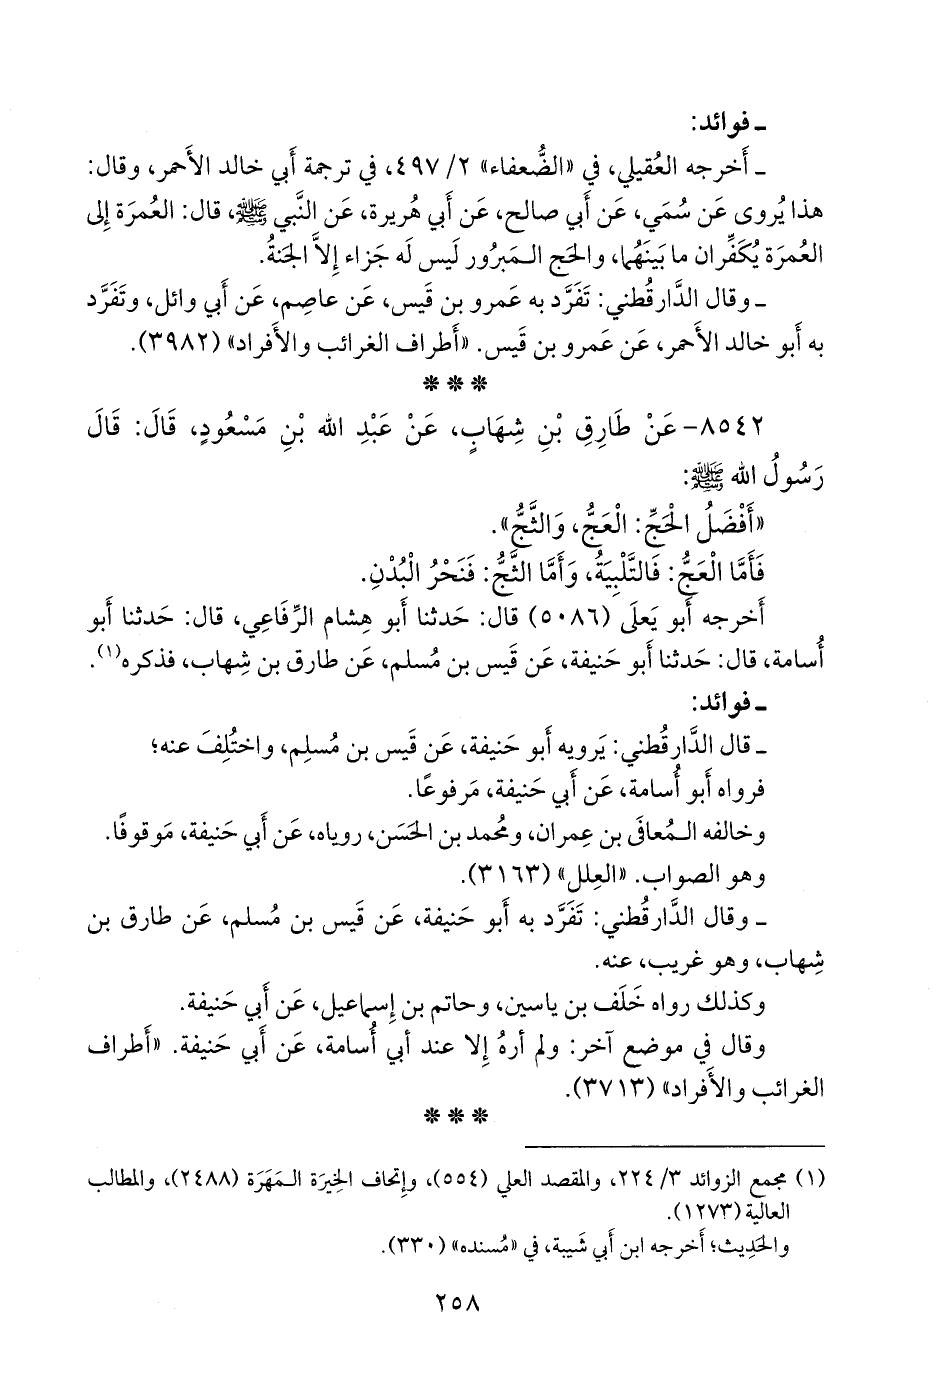 ـ فوائد:
ـ أَخرجه العُقيلي، في «الضُّعفاء» ٢/ ٤٩٧، في ترجمة أَبي خالد الأَحمر، وقال:
هذا يُروى عَن سُمَي، عَن أَبي صالح، عَن أَبي هُريرة، عَن النَّبي ﷺ، قال: العُمرَة إِلى
العُمرَة يُكَفِّران ما بَينَهُما، والحَج الـمَبرُور لَيس لَه جَزاء إِلاَّ الجَنةُ.
ـ وقال الدَّارقُطني: تَفَرَّد به عَمرو بن قَيس، عَن عاصِم، عَن أَبي وائل، وتَفَرَّد
به أَبو خالد الأَحمر، عَن عَمرو بن قَيس. «أَطراف الغرائب والأَفراد» (٣٩٨٢).
***
٨٥٤٢- عَنْ طَارِقِ بْنِ شِهَابٍ، عَنْ عَبْدِ الله بْنِ مَسْعُودٍ، قَالَ: قَالَ
رَسُولُ الله ﷺ:
«أَفْضَلُ الْحَجِّ: الْعَجُّ، وَالثَّجُّ».
فَأَمَّا الْعَجُّ: فَالتَّلْبِيَةُ، وَأَمَّا الثَّجُّ: فَنَحْرُ الْبُدْنِ.
أَخرجه أَبو يَعلَى (٥٠٨٦) قال: حَدثنا أَبو هِشام الرِّفَاعِي، قال: حَدثنا أَبو
أُسامة، قال: حَدثنا أَبو حَنيفة، عَن قَيس بن مُسلم، عَن طارق بن شِهاب، فذكره(١).
ـ فوائد:
ـ قال الدَّارقُطني: يَرويه أَبو حَنيفة، عَن قَيس بن مُسلِم، واختُلِفَ عنه؛
فرواه أَبو أُسامة، عَن أَبي حَنيفة، مَرفوعًا.
وخالفه الـمُعافَى بن عِمران، ومُحمد بن الحَسَن، روياه، عَن أَبي حَنيفة، مَوقوفًا.
وهو الصواب. «العِلل» (٣١٦٣).
ـ وقال الدَّارقُطني: تَفَرَّد به أَبو حَنيفة، عَن قَيس بن مُسلم، عَن طارق بن
شِهاب، وهو غريب، عنه.
وكذلك رواه خَلَف بن ياسين، وحاتم بن إِسماعيل، عَن أَبي حَنيفة.
وقال في موضع آخر: ولم أَرهُ إِلا عند أَبي أُسامة، عَن أَبي حَنيفة. «أَطراف
الغرائب والأَفراد» (٣٧١٣).
***
(١) مجمع الزوائد ٣/ ٢٢٤، والمقصد العلي (٥٥٤)، وإِتحاف الخِيرَة الـمَهَرَة (٢٤٨٨)، والمطالب
العالية (١٢٧٣).
والحَدِيث؛ أَخرجه ابن أَبي شَيبة، في «مُسنده» (٣٣٠).
٢٥٨